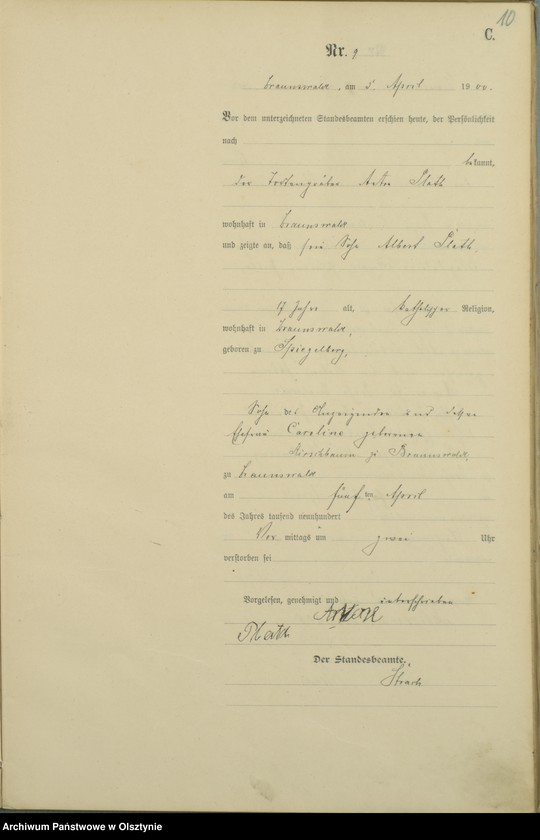 10
C.
Nr. 9
Braunswalde, am 5. April 1900.
Vor dem unterzeichneten Standesbeamten erschien heute, der Persönlichkeit
nach
bekannt,
der Anton Plath
wohnhaft in Braunswalde
und zeigte an, daß sein Sohn Albert Plath,
17 Jahre alt, katholischer Religion,
wohnhaft in Braunswalde,
geboren zu Spiegelberg,
Sohn des Anzeigenden und dessen
Ehefrau Caroline geborenen
Kirschbaum zu Braunswalde,
zu Braunswalde
am fünften April
des Jahres tausend neunhundert
Vor mittags um zwei Uhr
verstorben sei
Vorgelesen, genehmigt und unterschrieben
Plath
Der Standesbeamte.
Archiwum Państwowe w Olsztynie